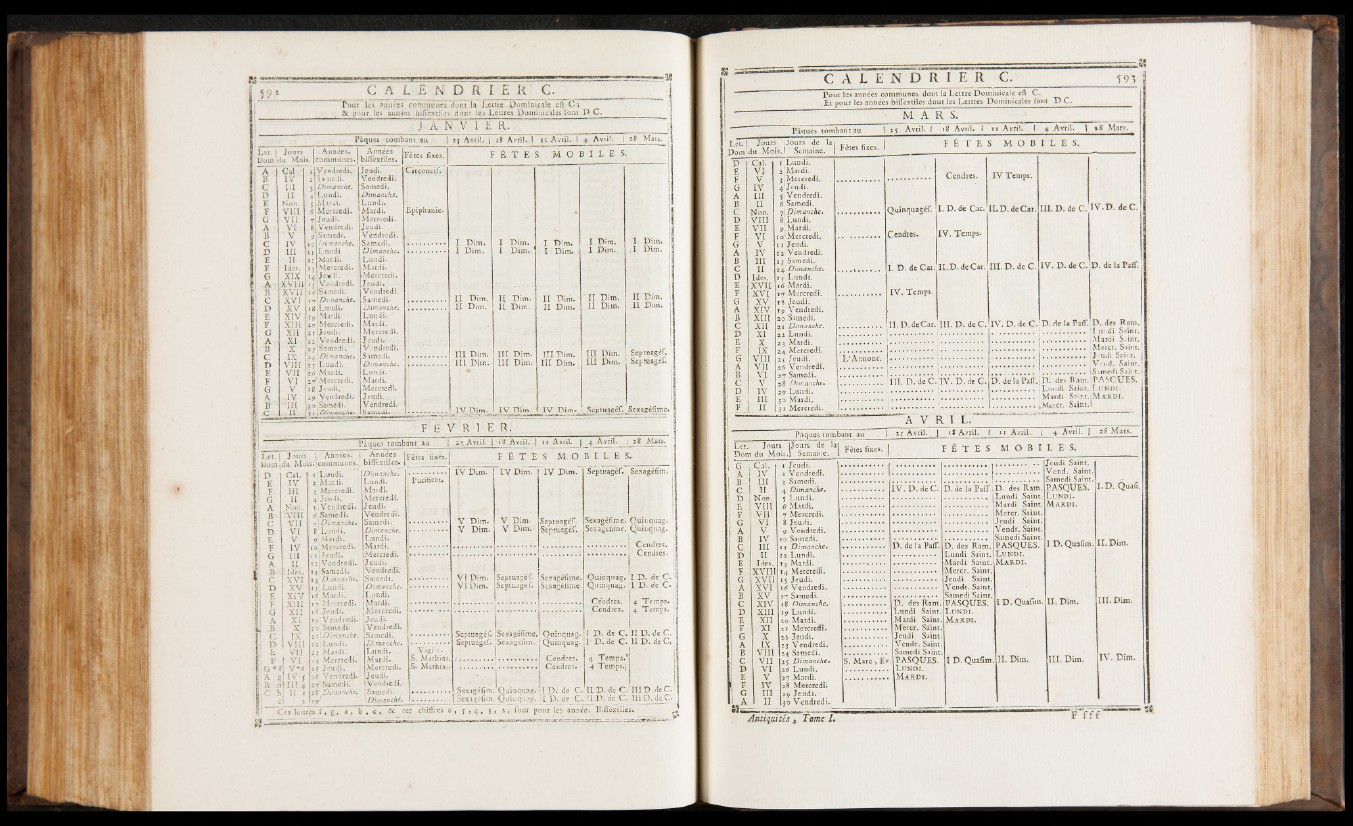 592 CALENDRIER C.
Pour les années communes dont la Lettre Dominicale est C;
& pour les années bissextiles dont les Lettres Dominicales sont D C.
JANVIER.
Pâques tombant au 25 Avril. 18 Avril. 11 Avril. 4 Avril. 28 Mars.
Let. Dom Jours du Mois. Années. communes. Années bissextiles. Fêtes fixes. FÊTES MOBILES.
A Cal. 1 Vendredi. Jeudi. Circoncis.
B IV 2 Samedi. Vendredi.
C III 3 Dimanche. Samedi.
D II 4 Lundi. Dimanche.
E Non. 5 Mardi. Lundi.
F VIII 6 Mercredi. Mardi. Epiphanie.
G VII 7 Jeudi. Mercredi.
A VI 8 Vendredi. Jeudi.
B V 9 Samedi. Vendredi.
C IV 10 Dimanche. Samedi. I Dim. I Dim. I Dim. I Dim. I Dim.
D III 11 Lundi. Dimanche. I Dim. I Dim. I Dim. I Dim. I Dim.
E II 12 Mardi. Lundi.
F Ides. 13 Mercredi. Mardi.
G XIX 14 Jeudi. Mercredi.
A XVIII 15 Vendredi. Jeudi.
B XVII 16 Samedi. Vendredi.
C XVI 17 Dimanche. Samedi. II Dim. II Dim. II Dim. II Dim. II Dim.
D XV 18 Lundi. Dimanche. II Dim. II Dim. II Dim. II Dim. II Dim.
E XIV 19 Mardi. Lundi.
F XIII 20 Mercredi. Mardi.
G XII 21 Jeudi. Mercredi.
A XI 22 Vendredi. Jeudi.
B X 23 Samedi. Vendredi.
C IX 24 Dimanche. Samedi. III Dim. III Dim. III Dim. III Dim. Septuagés.
D VIII 25 Lundi. Dimanche. III Dim. III Dim. III Dim. III Dim. Septuagés.
E VII 26 Mardi. Lundi.
F VI 27 Mercredi. Mardi.
G V 28 Jeudi. Mercredi.
A IV 29 Vendredi. Jeudi.
B III 30 Samedi. Vendredi.
C II 31 Dimanche. Samedi. IV Dim. IV Dim. IV Dim. Septuagés. Sexagésime.
FEVRIER.
Pâques tombant au 25 Avril. 18 Avril. 11 Avril. 4 Avril. 28 Mars.
Let. Dom Jours du Mois. Années. communes. Années bissextiles. Fêtes fixes. FÊTES MOBILES.
D Cal. 1 Lundi. Dimanche. IV Dim. IV Dim. IV Dim. Septuagés. Sexagésim.
E IV 2 Mardi. Lundi. Purificat.
F III 3 Mercredi. Mardi.
G II 4 Jeudi. Mercredi.
A Non. 5 Vendredi. Jeudi.
B VIII 6 Samedi. Vendredi.
C VII 7 Dimanche. Samedi. V Dim. V Dim. Septuagés. Sexagésime. Quinquag.
D VI 8 Lundi. Dimanche. V Dim. V Dim. Septuagés. Sexagésime. Quinquag.
E V 9 Mardi. Lundi.
F IV 10 Mercredi. Mardi. Cendres.
G III 11 Jeudi. Mercredi. Cendres.
A II 12 Vendredi. Jeudi.
B Ides. 13 Samedi. Vendredi.
C XVI 14 Dimanche. Samedi. VI Dim. Septuagés. Sexagésime. Quinquag. I D. de C.
D XV 15 Lundi. Dimanche. VI Dim. Septuagés. Sexagésime. Quinquag. I D. de C.
E XIV 16 Mardi. Lundi.
F XIII 17 Mercredi. Mardi. Cendres. 4 Temps.
G XII 18 Jeudi. Mercredi. Cendres. 4 Temps.
A XI 19 Vendredi. Jeudi.
B X 20 Samedi. Vendredi.
C IX 21 Dimanche. Samedi. Septuagés. Sexagésime. Quinquag. I D. de C. II D. de C.
D VIII 22 Lundi. Dimanche. Septuagés. Sexagésim. Quinquag. I D. de C. II D. de C.
E VII 23 Mardi. Lundi. Vigile.
F VI 24 Mercredi. Mardi. S. Mathias. Cendres. 4 Temps.
G f V 25 Jeudi. Mercredi. S. Mathias. Cendres. 4 Temps.
A g IV 5 26 Vendredi. Jeudi.
B a III 4 27 Samedi. Vendredi.
C b II 3 28 Dimanche. Samedi. Sexagésim. Quinquag. I D. de C. II D. de C. III D. de C.
c 29 Dimanche. Sexagésim. Quinquag. I D. de C. II D. de C. III D. de C.
Ces lettres f, g, a, b, c, & ces chiffres 6, 5, 4, 3, 2, sont pour les année. Bissextiles.
CALENDRIER C. 593
Pour les années communes dont la Lettre Dominicale est C.
Et pour les années bissextiles dont les Lettres Dominicales sont D C.
MARS.
Pâques tombant au 25 Avril. 18 Avril. 11 Avril. 4 Avril. 28 Mars.
Let. Dom Jours du Mois. Jours de la Semaine. Fêtes fixes. FÊTES MOBILES.
D Cal. 1 Lundi.
E VI 2 Mardi.
F V 3 Mercredi. Cendres. IV Temps.
G IV 4 Jeudi.
A III 5 Vendredi.
B II 6 Samedi.
C Non. 7 Dimanche. Quinquagés. I. D. de Car. II. D. de Car. III. D. de C. IV. D. de C.
D VIII 8 Lundi.
E VII 9 Mardi.
F VI 10 Mercredi. Cendres. IV. Temps.
G V 11 Jeudi.
A IV 12 Vendredi.
B III 13 Samedi.
C II 14 Dimanche. I. D. de Car. II. D. de Car. III. D. de C. IV. D. de C. D. de la Pass.
D Ides. 15 Lundi.
E XVII 16 Mardi.
F XVI 17 Mercredi. IV. Temps.
G XV 18 Jeudi.
A XIV 19 Vendredi.
B XIII 20 Samedi.
C XII 21 Dimanche. II. D. de Car. III. D. de C. IV. D. de C. D. de la Pass. D. des Ram.
D XI 22 Lundi. Lundi Saint.
E X 23 Mardi. Mardi Saint.
F IX 24 Mercredi. Mercr. Saint.
G VIII 25 Jeudi. L'Annonc. Jeudi Saint.
A VII 26 Vendredi. Vend. Saint.
B VI 27 Samedi. Samedi Saint.
C V 28 Dimanche. III. D. de C. IV. D. de C. D. de la Pass. D. des Ram. PASQUES.
D IV 29 Lundi. Lundi Saint. LUNDI.
E III 30 Mardi. Mardi Saint. MARDI.
F II 31 Mercredi. Mercr. Saint.
AVRIL.
Pâques tombant au 25 Avril. 18 Avril. 11 Avril. 4 Avril. 28 Mars.
Let. Dom Jours du Mois. Jours de la Semaine. Fêtes fixes. FÊTES MOBILES.
G Cal. 1 Jeudi. Jeudi Saint.
A IV 2 Vendredi. Vend. Saint.
B III 3 Samedi. Samedi Saint.
C II 4 Dimanche. IV. D. de C. D. de la Pass. D. des Ram. PASQUES. I. D. Quasi.
D Non. 5 Lundi. Lundi Saint. LUNDI.
E VIII 6 Mardi. Mardi Saint. MARDI.
F VII 7 Mercredi. Mercr. Saint.
G VI 8 Jeudi. Jeudi Saint.
A V 9 Vendredi. Vendr. Saint.
B IV 10 Samedi. Samedi Saint.
C III 11 Dimanche. D. de la Pass. D. des Ram. PASQUES. I D. Quasim. II. Dim.
D II 12 Lundi. Lundi Saint. LUNDI.
E Ides. 13 Mardi. Mardi Saint. MARDI.
F XVIII 14 Mercredi. Mercr. Saint.
G XVII 15 Jeudi. Jeudi Saint.
A XVI 16 Vendredi. Vendr. Saint.
B XV 17 Samedi. Samedi Saint.
C XIV 18 Dimanche. D. des Ram. PASQUES. I D. Quasim. II. Dim. III. Dim.
D XIII 19 Lundi. Lundi Saint. LUNDI.
E XII 20 Mardi. Mardi Saint. MARDI.
F XI 21 Mercredi. Mercr. Saint.
G X 22 Jeudi. Jeudi Saint.
A IX 23 Vendredi. Vendr. Saint.
B VIII 24 Samedi. Samedi Saint.
C VII 25 Dimanche. S. Marc, Ev. PASQUES. I D. Quasim. II. Dim. III. Dim. IV. Dim.
D VI 26 Lundi. LUNDI.
E V 27 Mardi. MARDI.
F IV 28 Mercredi.
G III 29 Jeudi.
A II 30 Vendredi.
Antiquités, Tome I. Ffff